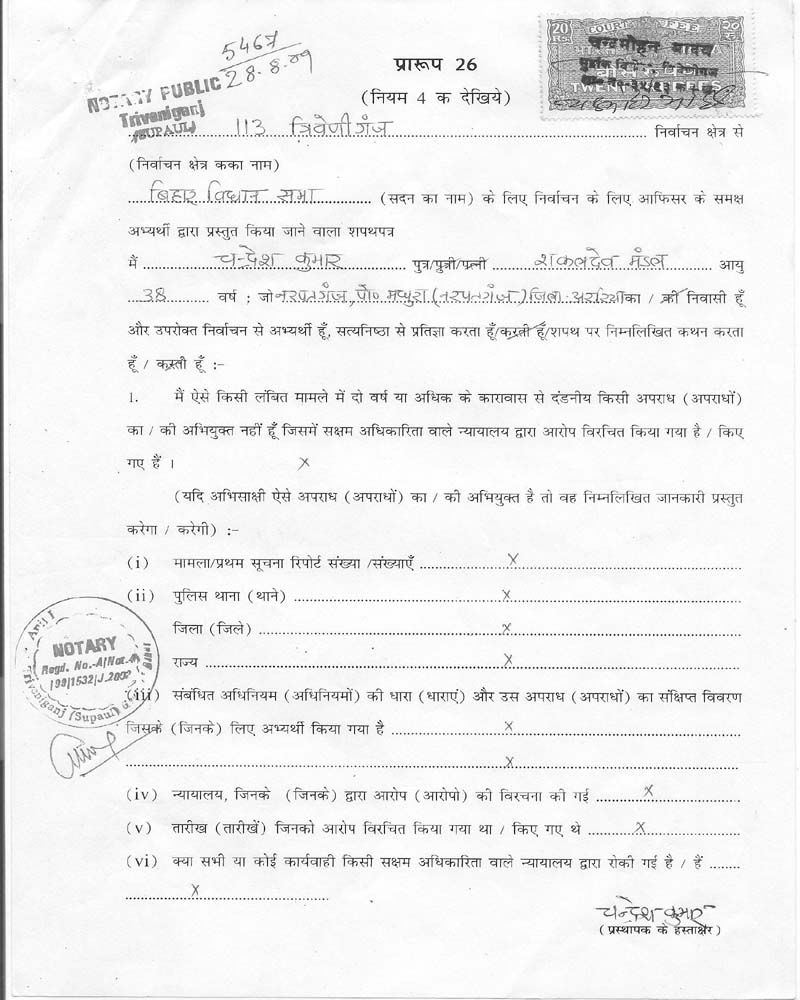 5467
28.8.09
NOTARY PUBLIC
Triveniganj
(SUPAUL)
20 Rs COURT FEE २० रु.
चन्द्रमोहन यादव
TWENTY
प्रारूप 26
(नियम 4 क देखिये)
113 त्रिवेणीगंज निर्वाचन क्षेत्र से
(निर्वाचन क्षेत्र कका नाम)
बिहार विधान सभा (सदन का नाम) के लिए निर्वाचन के लिए आफिसर के समक्ष
अभ्यर्थी द्वारा प्रस्तुत किया जाने वाला शपथपत्र
मैं चन्द्रेश कुमार पुत्र/पुत्री/पत्नी शकलदेव मंडल आयु
38 वर्ष ; जो नरपतगंज, पो० मथुरा (नरपतगंज) जिला अररिया का / की निवासी हूँ
और उपरोक्त निर्वाचन से अभ्यर्थी हूँ, सत्यनिष्ठा से प्रतिज्ञा करता हूँ/करती हूँ/शपथ पर निम्नलिखित कथन करता
हूँ / करती हूँ :–
1. मैं ऐसे किसी लंबित मामले में दो वर्ष या अधिक के कारावास से दंडनीय किसी अपराध (अपराधों)
का / की अभियुक्त नहीं हूँ जिसमें सक्षम अधिकारिता वाले न्यायालय द्वारा आरोप विरचित किया गया है / किए
गए हैं । X
(यदि अभिसाक्षी ऐसे अपराध (अपराधों) का / की अभियुक्त है तो वह निम्नलिखित जानकारी प्रस्तुत
करेगा / करेगी) :–
(i) मामला/प्रथम सूचना रिपोर्ट संख्या /संख्याएँ X
(ii) पुलिस थाना (थाने) X
जिला (जिले) X
राज्य X
NOTARY
Regd. No.-A/Not-
99/1532/J.2002
Triveniganj (Supaul)
(iii) संबंधित अधिनियम (अधिनियमों) की धारा (धाराएं) और उस अपराध (अपराधों) का संक्षिप्त विवरण
जिसके (जिनके) लिए अभ्यर्थी किया गया है X
X
(iv) न्यायालय, जिनके (जिनके) द्वारा आरोप (आरोपो) की विरचना की गई X
(v) तारीख (तारीखें) जिनको आरोप विरचित किया गया था / किए गए थे X
(vi) क्या सभी या कोई कार्यवाही किसी सक्षम अधिकारिता वाले न्यायालय द्वारा रोकी गई है / हैं
X
चन्द्रेश कुमार
(प्रस्थापक के हस्ताक्षर)